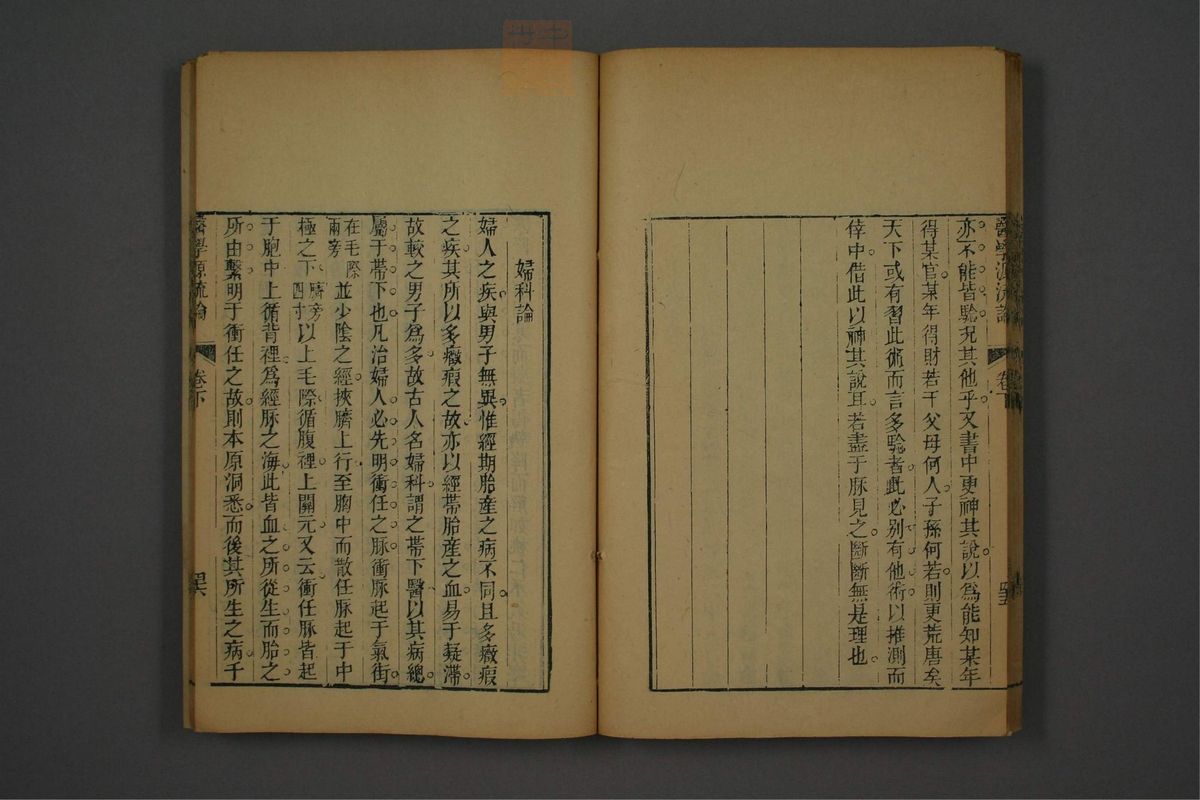 醫學源流論 卷下
亦不能皆驗況其他乎又書中更神其說以爲能知某年
得某官某年得財若干父母何人子孫何若則更荒唐矣
天下或有習此術而言多驗者此必别有他術以推測而
倖中借此以神其說耳若盡于脉見之斷斷無是理也
婦科論
婦人之疾與男子無異惟經期胎産之病不同且多癥瘕
之疾其所以多癥瘕之故亦以經帶胎産之血易于凝滯
故較之男子爲多故古人名婦科謂之帶下醫以其病總
屬于帶下也凡治婦人必先明衝任之脉衝脉起于氣街
在毛際兩旁並少陰之經挾臍上行至胸中而散任脉起于中
極之下臍旁四寸以上毛際循腹裡上關元又云衝任脉皆起
于胞中上循背裡爲經脉之海此皆血之所從生而胎之
所由繫明于衝任之故則本原洞悉而後其所生之病千
醫學源流論 卷下